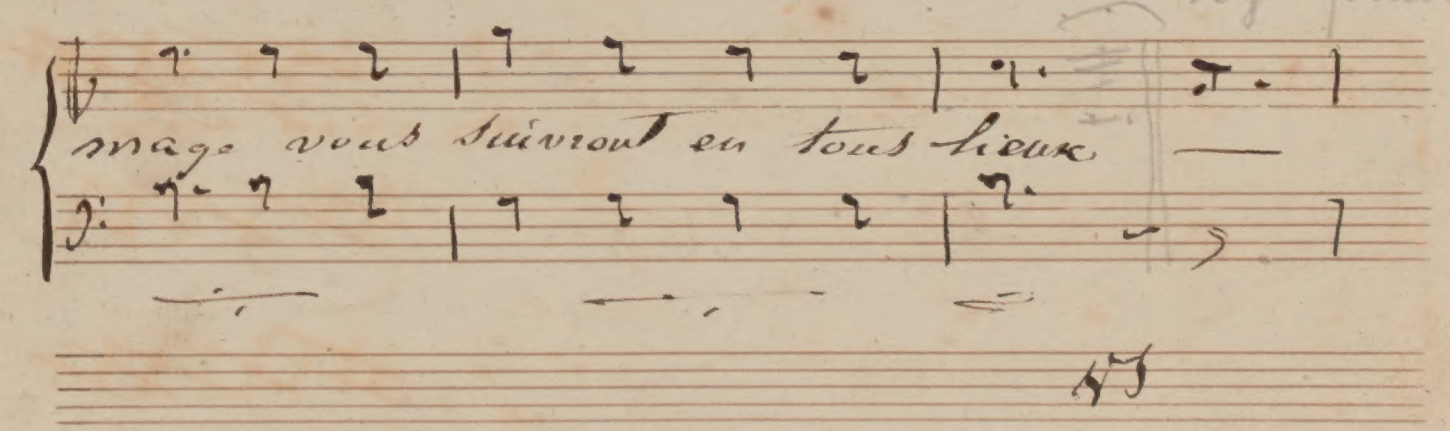 mage vous suivront en tous lieux